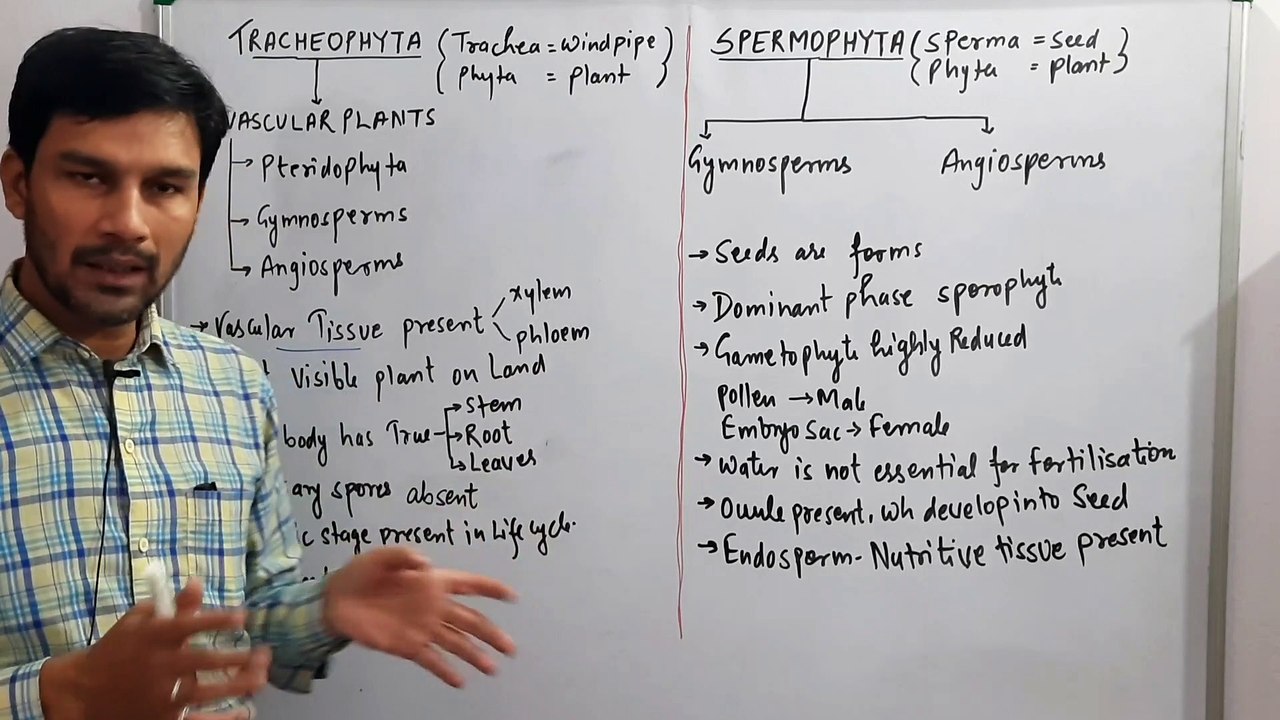 TRACHEOPHYTA {Trachea = windpipe}
{Phyta = plant}
VASCULAR PLANTS
→ Pteridophyta
→ Gymnosperms
→ Angiosperms
→ Vascular Tissue present
xylem
phloem
Visible plant on Land
body has True
→ Stem
→ Root
→ Leaves
spores absent
stage present in Life cycle.
SPERMOPHYTA {Sperma = Seed}
{Phyta = plant}
Gymnosperms Angiosperms
→ Seeds are forms
→ Dominant phase sporophyte
→ Gametophyte highly Reduced
Pollen → Male
Embryo Sac → Female
→ water is not essential for fertilisation
→ Ovule present, wh develop into Seed
→ Endosperm - Nutritive tissue present